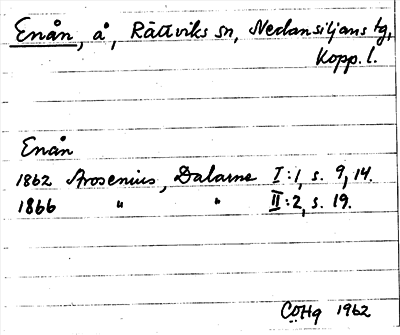 Enån, å, Rättviks sn, Nedansiljans tg,
Kopp. l.
Enån
1862 Arosenius, Dalarne I:1, s. 9, 14.
1866 " " II:2, s. 19.
CÖHg 1962